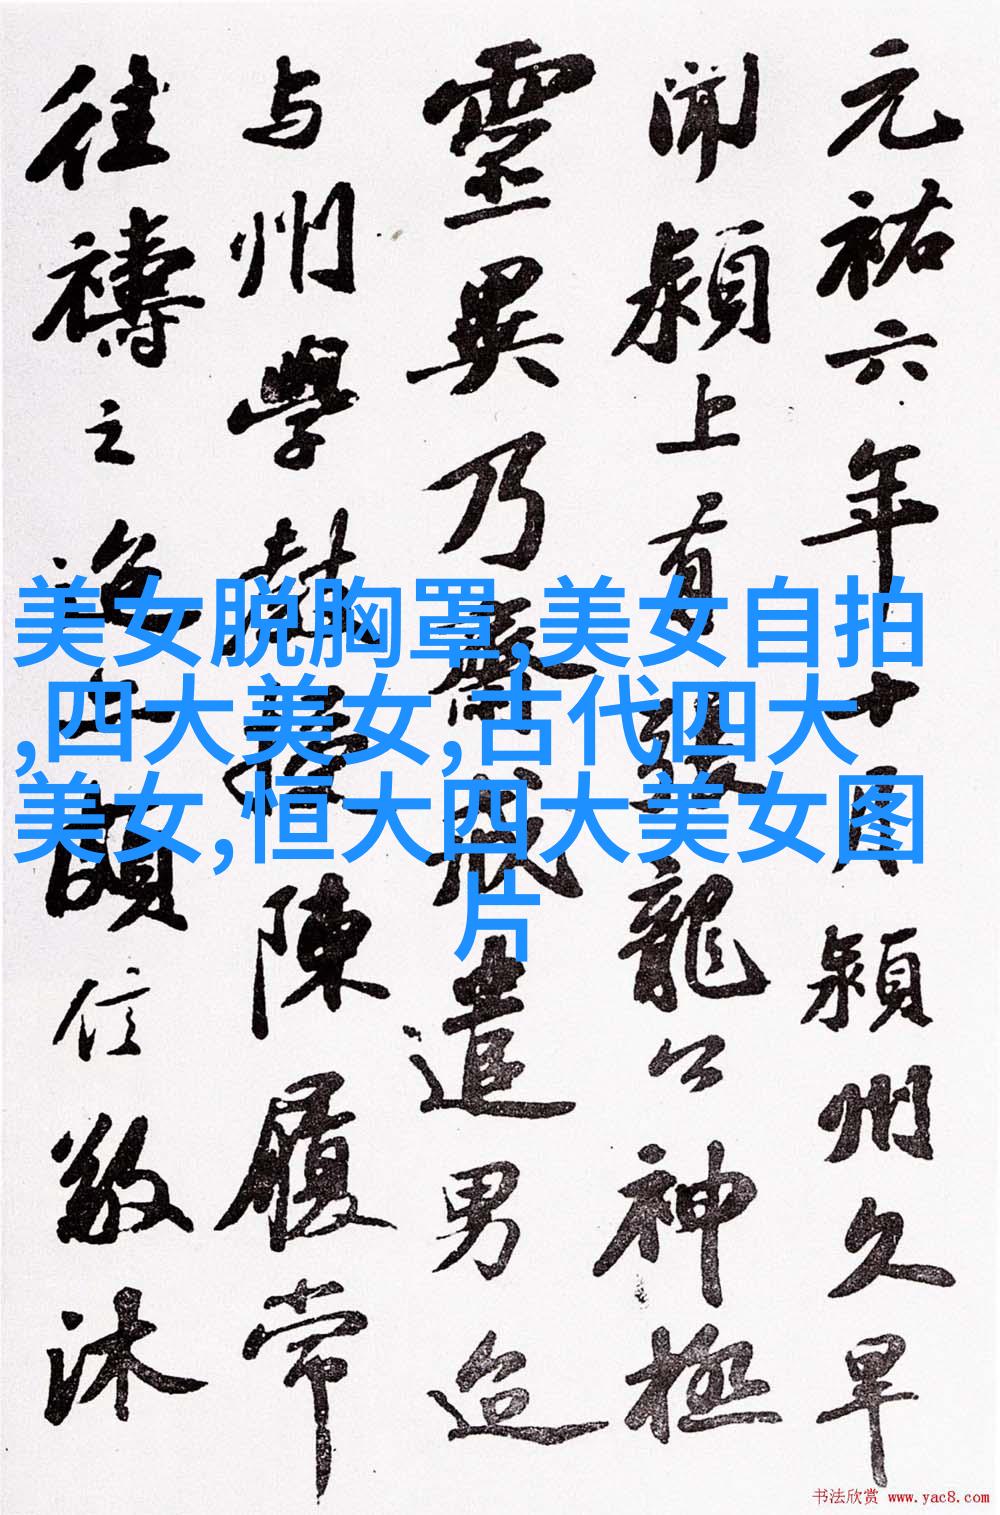 元祐六年十月颍州久旱
闻颍上有張龍公神極
靈異乃齋戒遣男迨
与州學教授陳履常
往禱之迨亦頗信敬沐
美女脱胸罩,美女自拍
,四大美女,古代四大
美女,恒大四大美女图
片
书法欣赏 www.yac8.com